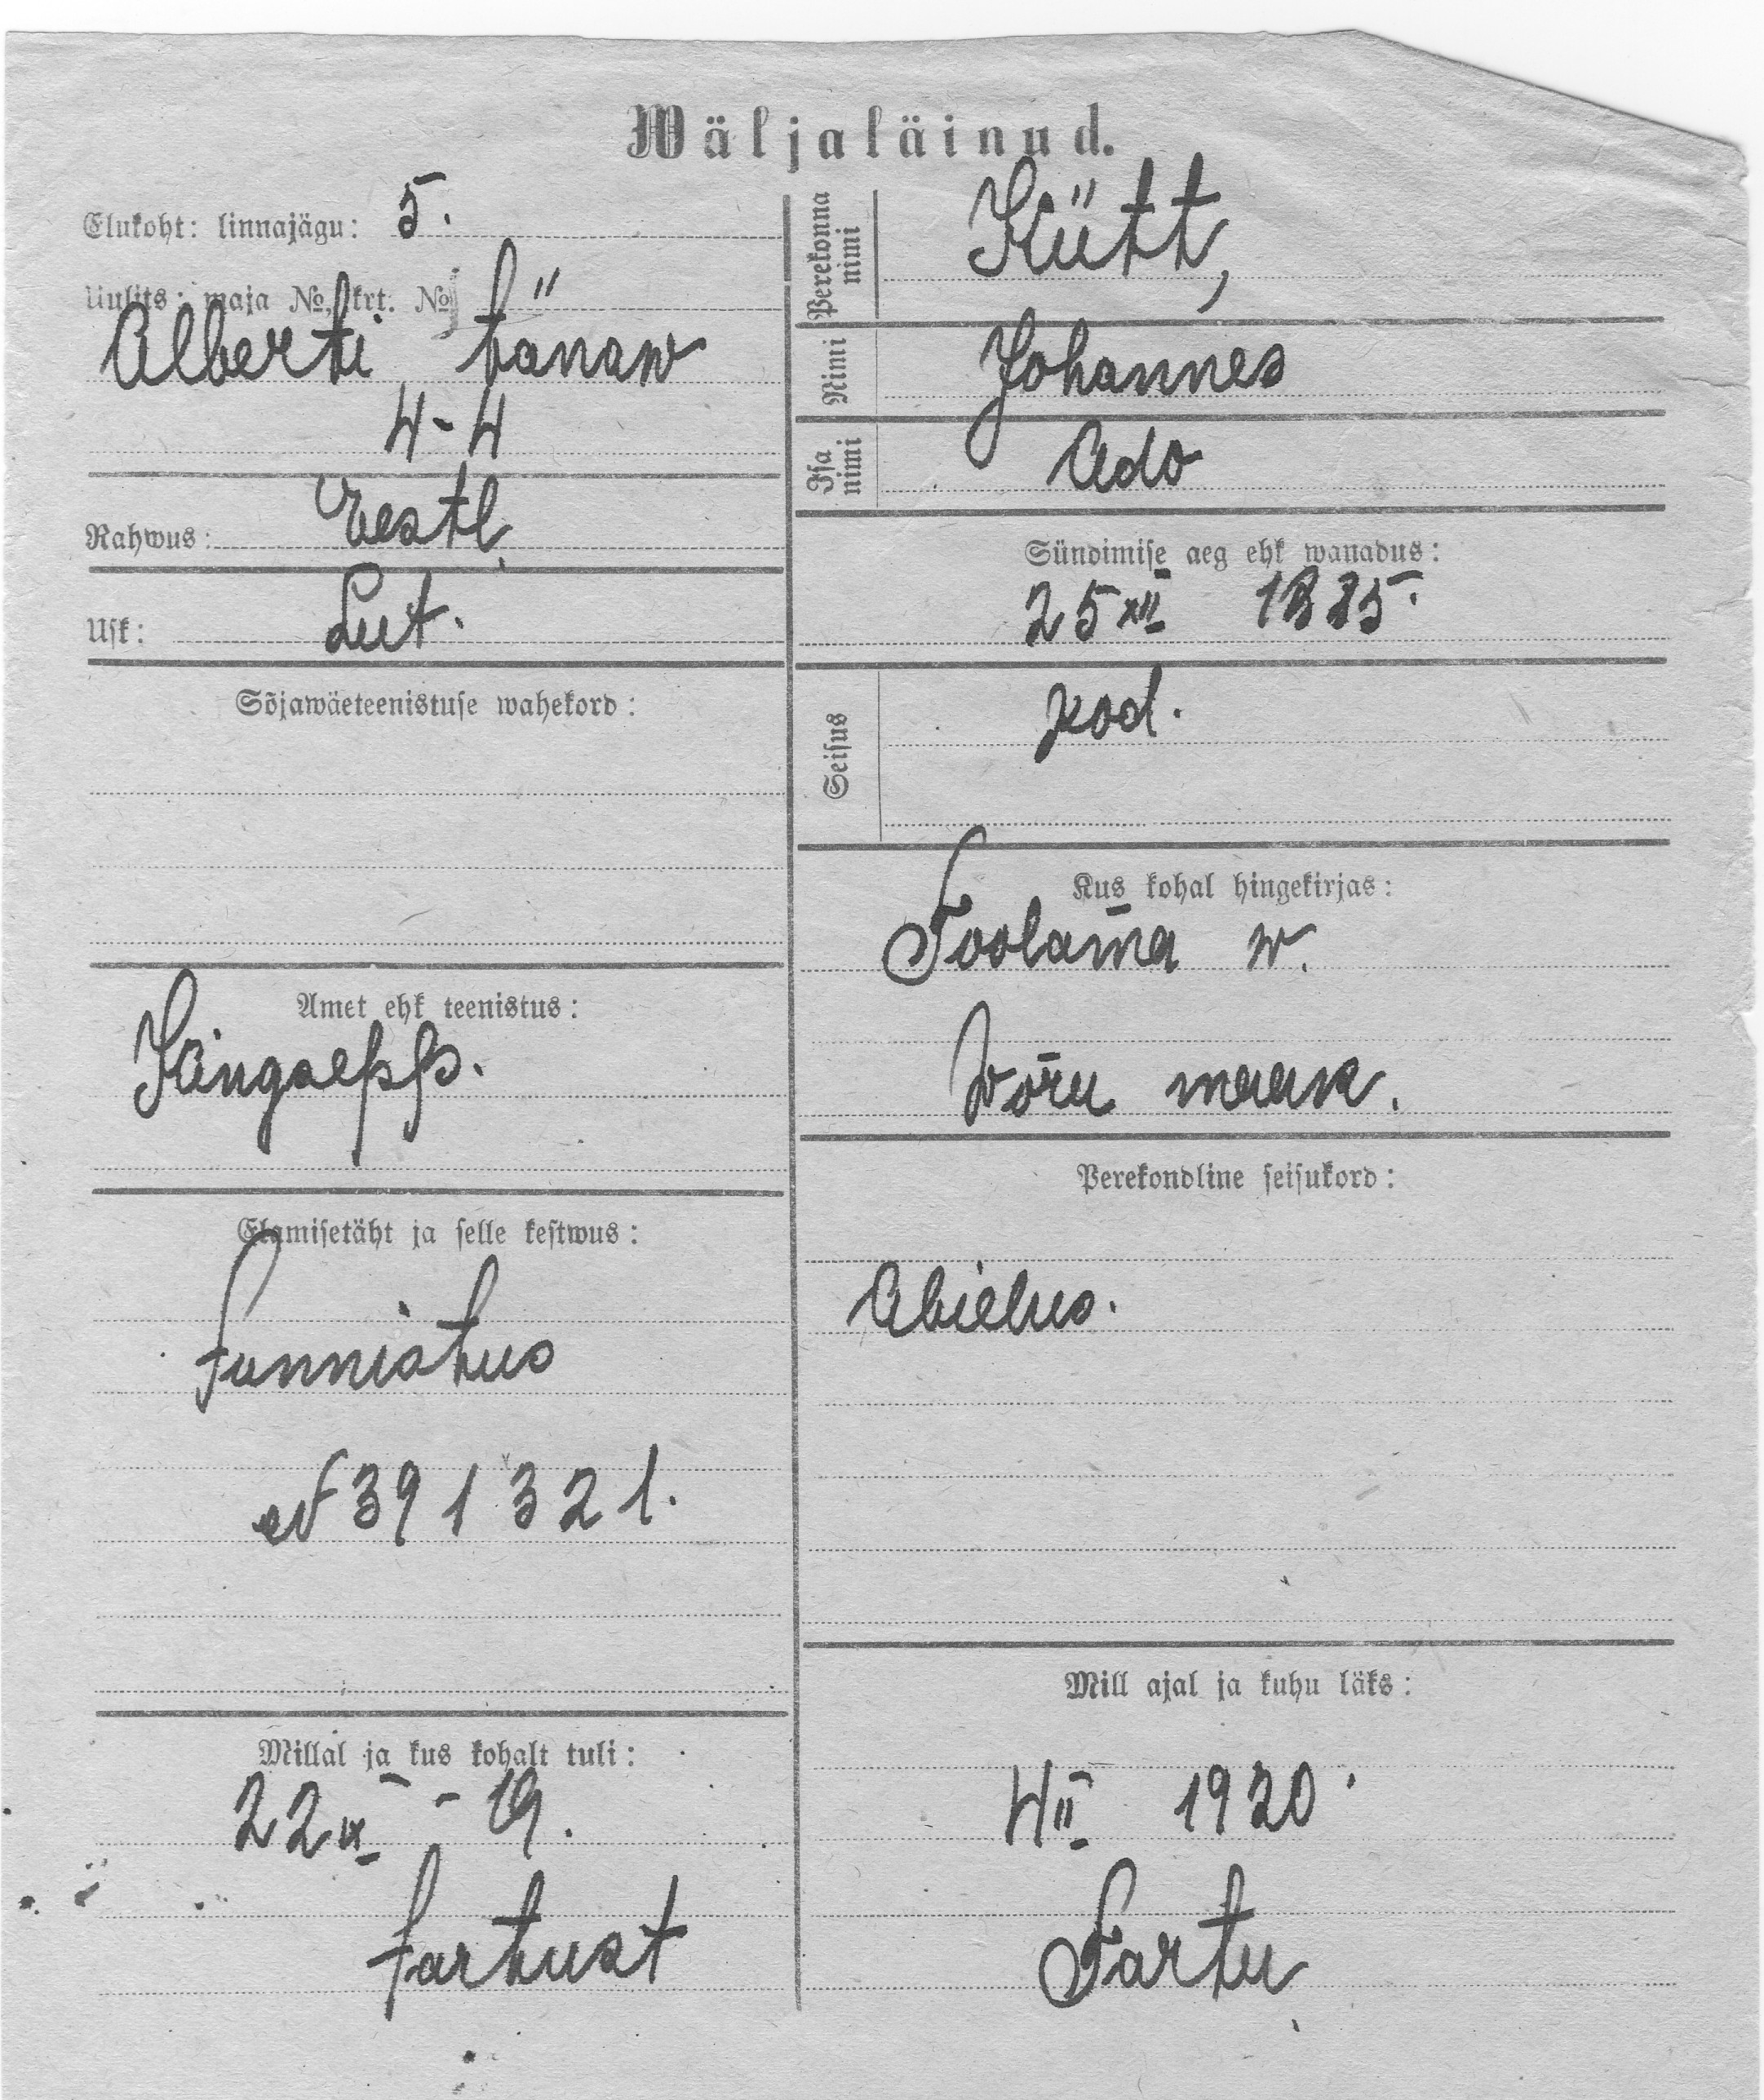 Wäljaläinud.
Elukoht: linnajägu: 5.
Uulits: maja №, krt. №
Alberti tänaw
4-4
Rahwus: Eestl.
Usk: Lut.
Sõjawäeteenistuse wahekord:
Amet ehk teenistus:
Kingsepp.
Elamisetäht ja selle kestwus:
Tunnistus
№ 391321.
Millal ja kus kohalt tuli:
22 IX - 19.
Tartust
Perekonna nimi
Kütt,
Nimi
Johannes
Isa nimi
Ado
Sündimise aeg ehk wanadus:
25 XII 1885.
Seisus
kod.
Kus kohal hingekirjas:
Toolama w.
Wõru maak.
Perekondline seisukord:
Abielus.
Mill ajal ja kuhu läks:
4 II 1920.
Tartu